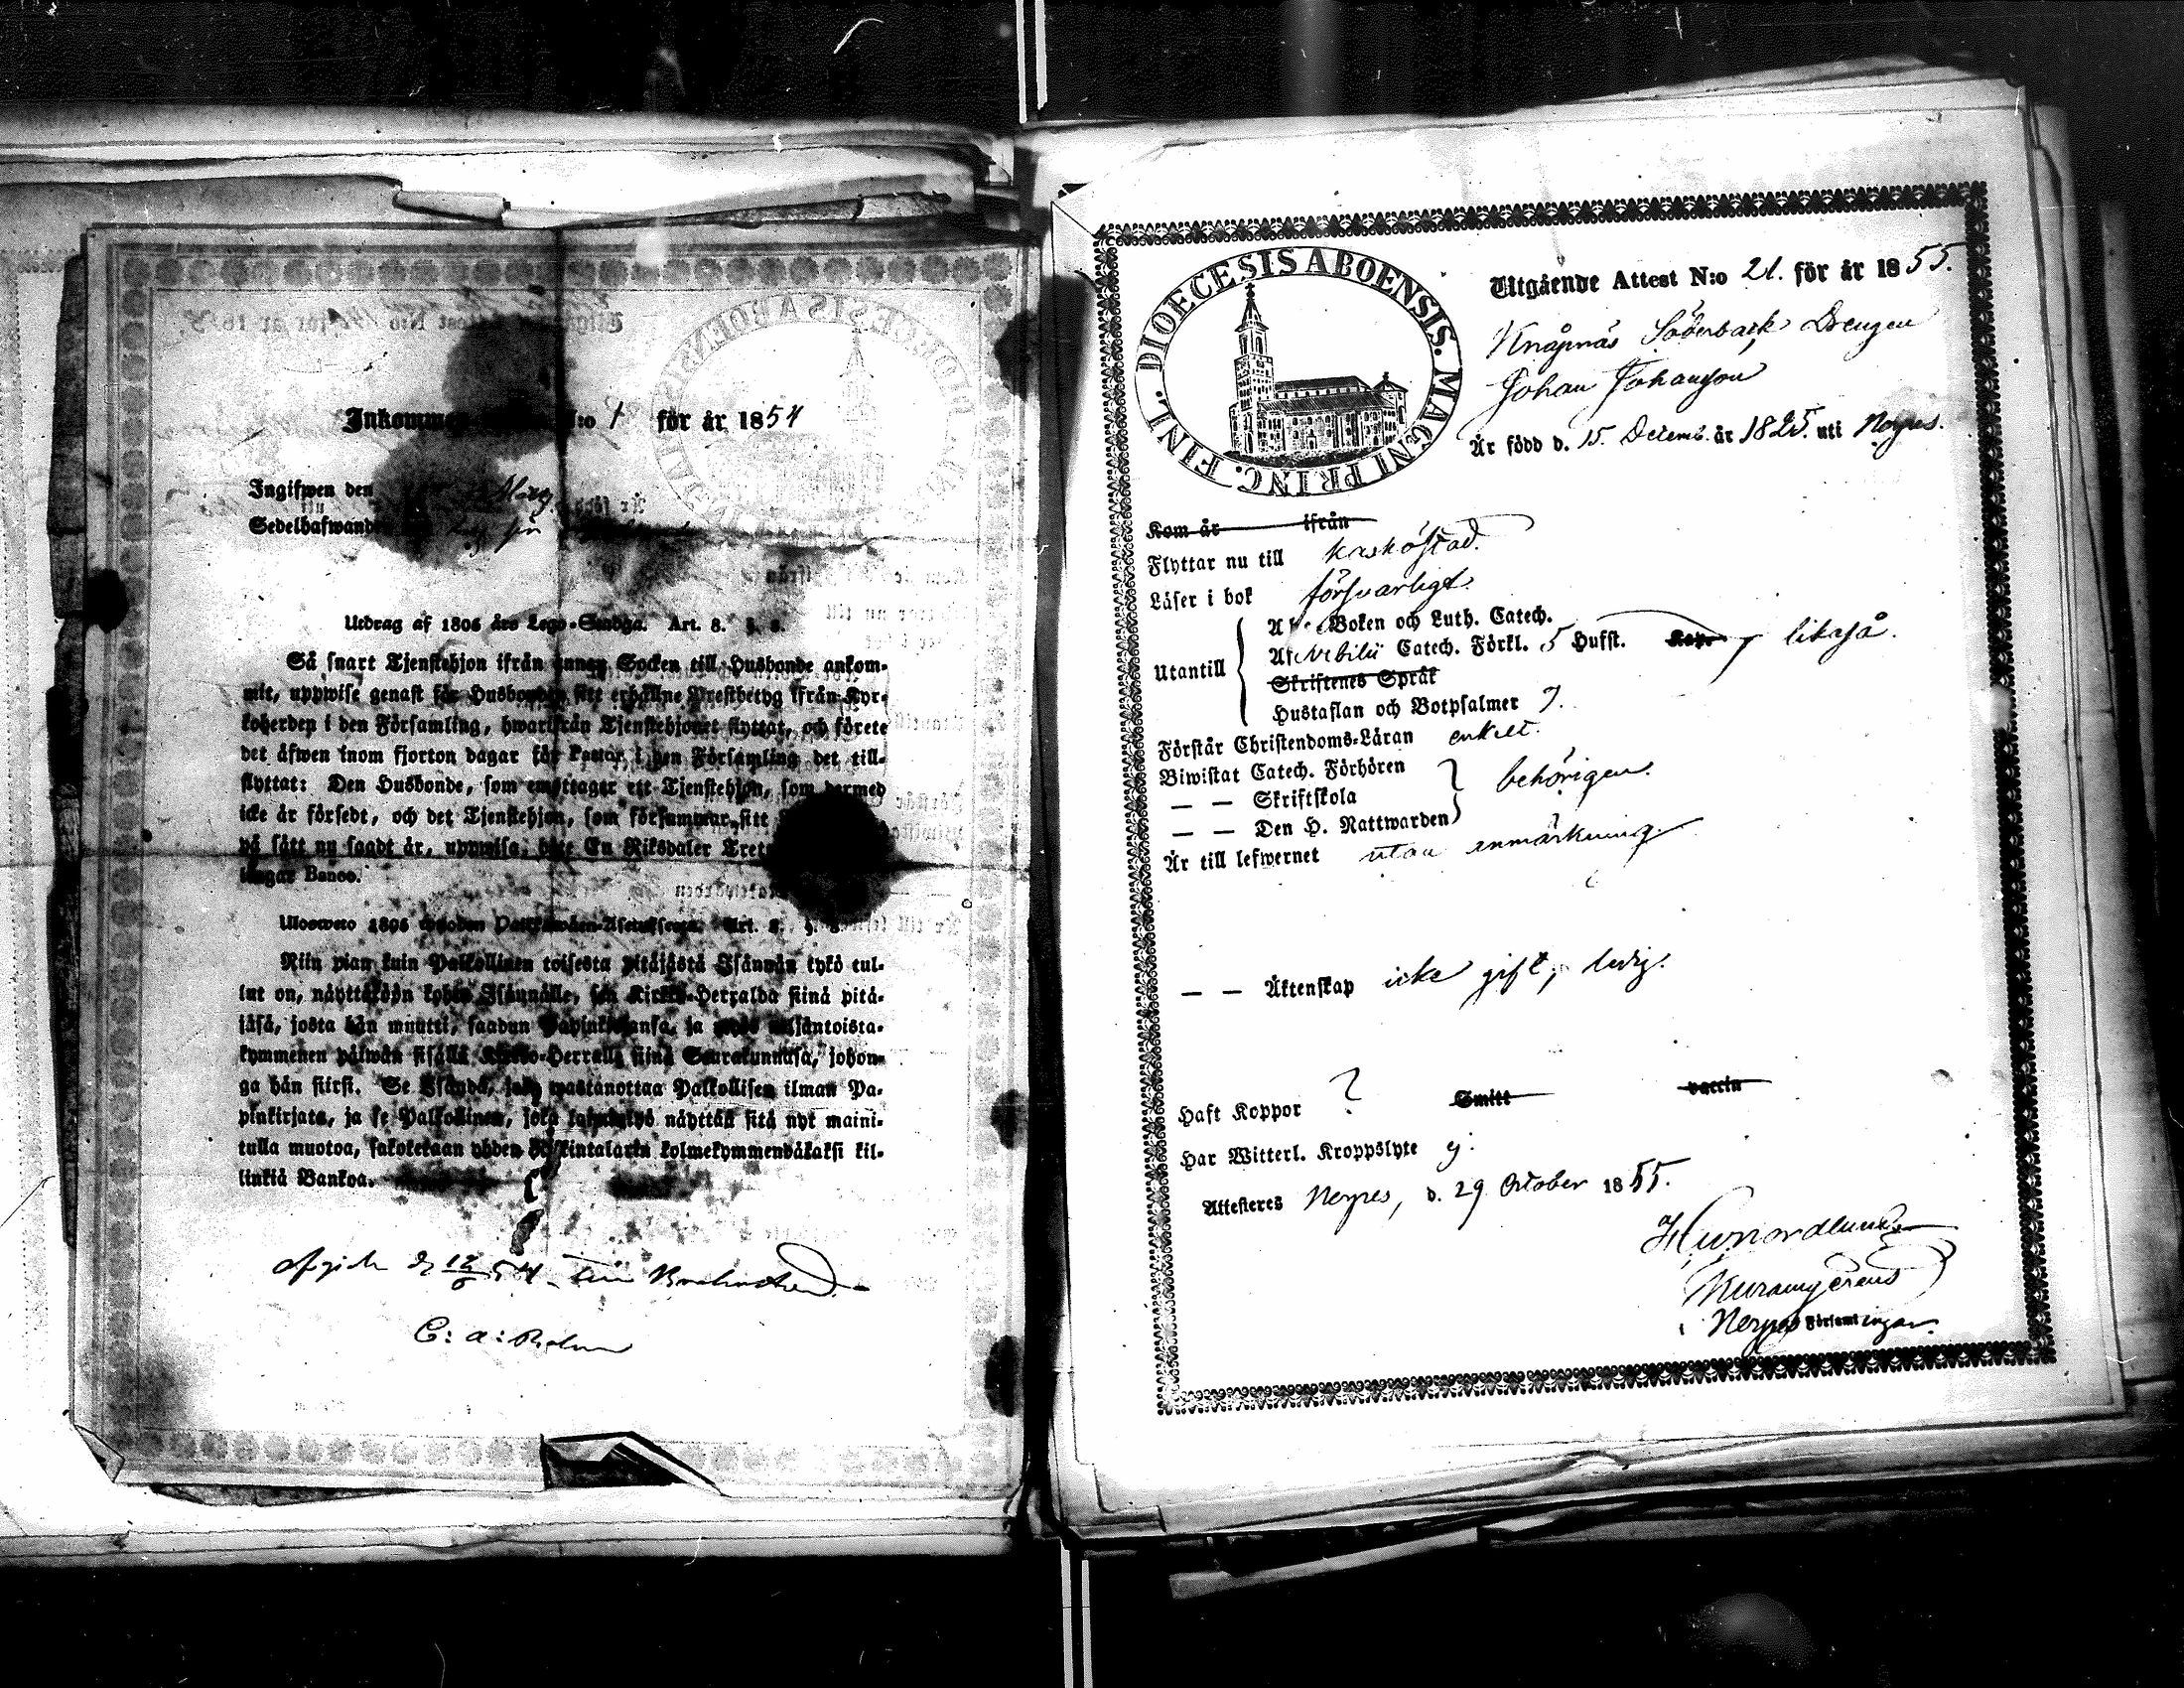 Inkommen N:o 1 för år 1854
Ingifwen den
Sedelhafwande
Utdrag af 1805 års Lego-Stadga. Art. 8. §. 8.
Så snart Tjenstehjon ifrån annan Socken till Husbonde ankom-
mit, uppwise genast för Husbonden sitt erhållne Prestbetyg ifrån Kyr-
koherden i den Församling, hwarifrån Tjenstehjonet flyttat, och förete
det äfwen inom fjorton dagar för Pastor i den Församling det till-
flyttat: Den Husbonde, som emottager ett Tjenstehjon, som dermed
icke är försedt, och det Tjenstehjon, som försummar sitt
på sätt nu sagdt är, uppwisa, böte En Riksdaler
lingar Banco.
Ulosweto 1805 wuoden Art. 8. §. 8.
Niin pian kuin Palkollinen toisesta pitäjästä Isännän tykö tul-
lut on, näyttäköön kohta Isännälle, sen Kirkko-Herralda siinä pitä-
jäsä, josta hän muutti, saadun Papinkirjansa, ja myös neljäntoista-
kymmenen päiwän sisällä Kirkko-Herralle siinä Seurakunnasa, johon-
ga hän siirsi. Se Isändä, joka wastanottaa Palkollisen ilman Pa-
pinkirjata, ja se Palkollinen, joka laiminlyö näyttää sitä nyt maini-
tulla muotoa, sakotetaan yhden Riikintalarin kolmekymmendäkaksi kil-
linkiä Bankoa.
C: a:
DIOECESIS ABOENSIS. MAGNI PRINC. FINL.
Utgående Attest N:o 21. för år 1855.
Knåpnäs Söderback Drengen
Johan Johansson
Är född d. 15. Decemb. år 1825. uti Nerpes.
Kom år ifrån
Flyttar nu till Kaskö stad.
Läser i bok försvarligt.
Utantill
A b c Boken och Luth. Catech.
Af Svebilii Catech. Förkl. 5 Hufst. Kap. likaså.
Skriftenes Språk
Hustaflan och Botpsalmer 7.
Förstår Christendoms-Läran enkelt.
Biwistat Catech. Förhören
— — Skriftskola behörigen.
— — Den H. Nattwarden
Är till lefwernet utan anmärkning.
— — Äktenskap icke gift, ledig.
Haft Koppor ? Smitt vaccin
Har Witterl. Kroppslyte ej.
Attesteras Nerpes, d. 29 October 1855.
Nerpes Församlingar.